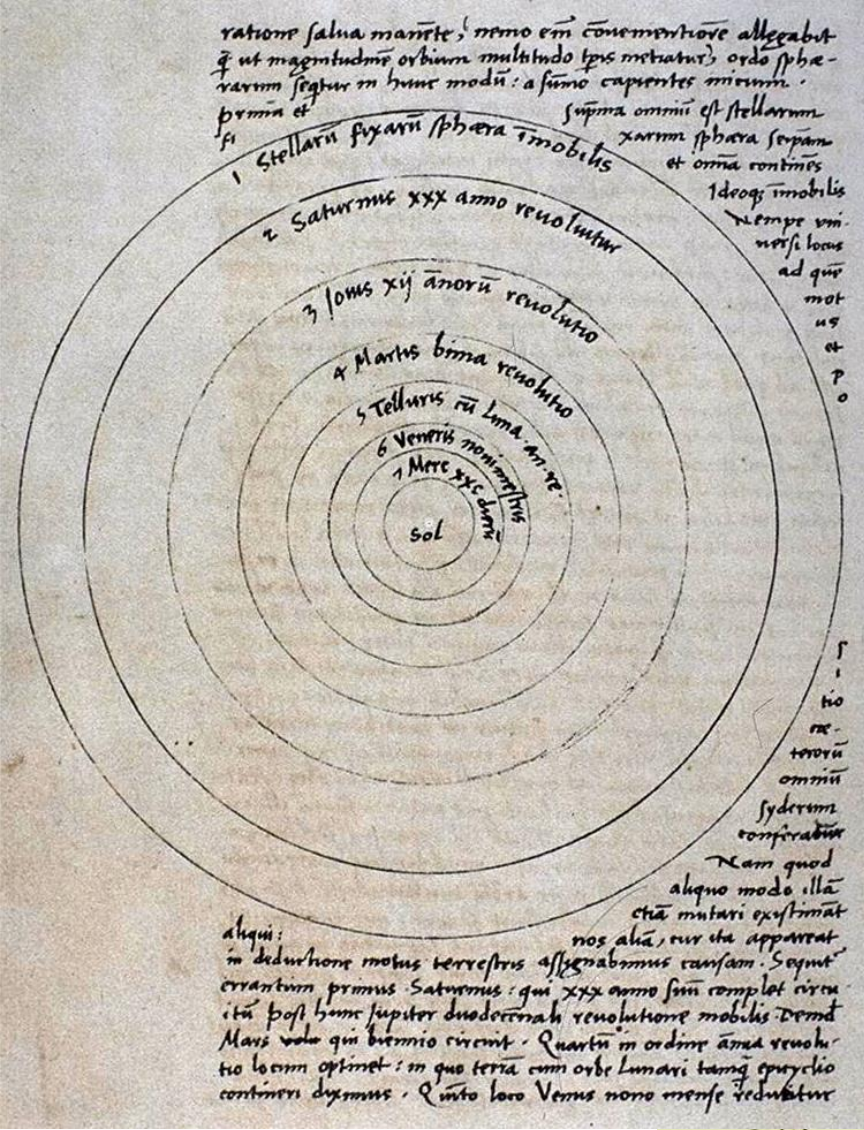 ratione salva manēte, nemo em̄ cōvementiorē allegabit
q̄ ut magnitudinē orbium multitudo tp̄is metiatur, ordo sphæ-
rarum seqtur in hunc modū: a sūmo capientes initium.
prima et sup̄ma omniū est stellarum
fi xarum sphæra seipsam
et omīa continēs
Ideoqȝ īmobilis
Nempe uni-
versi locus
ad quē
mot
us
et
p
o
1 Stellarū fixarū sphæra īmobilis
2 Saturnus xxx anno revolvitur
3 Jovis xij ānorū revolutio
4 Martis bima revolutio
5 Telluris cū Luna. an. re.
6 Veneris nonimestris
7 Merc xxc dierū
Sol
s
i
tio
cæ-
terorū
omniū
syderum
conferatur
Nam quod
aliquo modo illā
etiā mutari existimāt
aliqui: nos aliā, cur ita appareat
in deductione motus terrestris assignabimus causam. Sequit̄
errantium primus Saturnus: qui xxx anno suū complet circu
itū post hunc Jupiter duodecēnali revolutione mobilis Deind
Mars qui biennio circuit. Quartū in ordine ānua revolu-
tio locum optinet: in quo terrā cum orbe Lunari tamq̄ epicyclio
contineri diximus. Quīto loco Venus nono mense reducitur